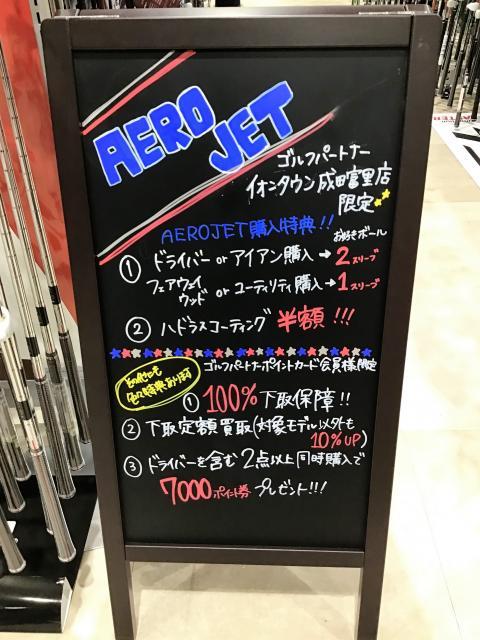 AERO
JET
ゴルフパートナー
イオンタウン成田富里店
限定
AEROJET購入特典!!
お好きボール
① ドライバー or アイアン購入 → 2スリーブ
フェアウェイウッド or ユーティリティ購入 → 1スリーブ
② ハドラスコーティング 半額!!!
その他にも
色々特典あります
ゴルフパートナーポイントカード会員様限定
① 100%下取保障!!
② 下取定額買取(対象モデル以外も
10%UP)
③ ドライバーを含む2点以上同時購入で
7000ポイント券プレゼント!!!